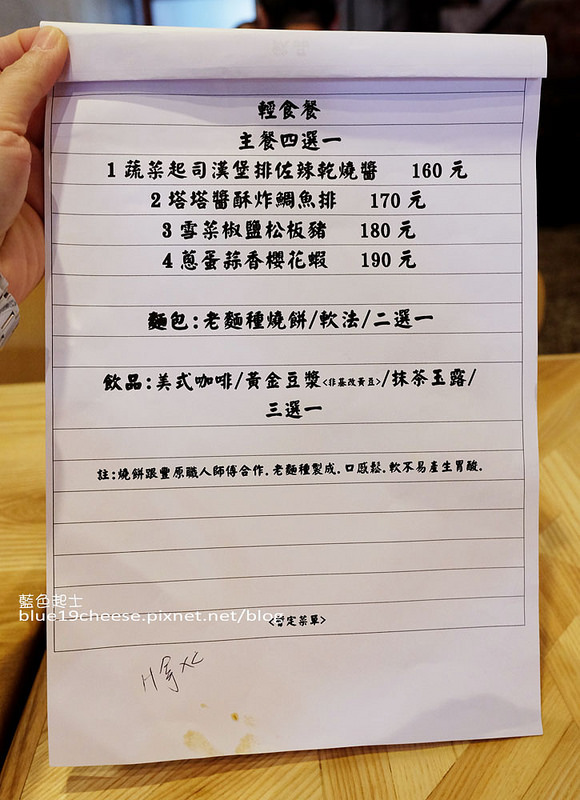 輕食餐
主餐四選一
1 蔬菜起司漢堡排佐辣乾燒醬 160 元
2 塔塔醬酥炸鯛魚排 170 元
3 雪菜椒鹽松板豬 180 元
4 蔥蛋蒜香櫻花蝦 190 元
麵包:老麵種燒餅/軟法/二選一
飲品:美式咖啡/黃金豆漿<非基改黃豆>/抹茶玉露/
三選一
註:燒餅跟豐原職人師傅合作.老麵種製成.口感鬆.軟不易產生胃酸.
<暫定菜單>
藍色起士
blue19cheese.pixnet.net/blog